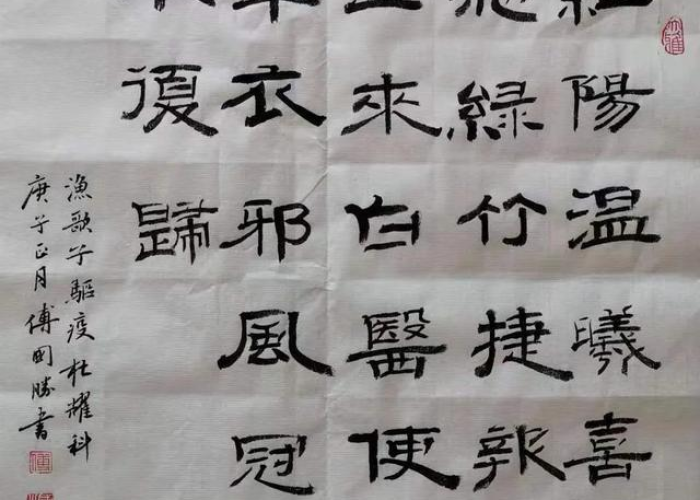 紅陽溫曦喜
綠竹捷報
來白醫使
衣邪風冠
復歸
漁歌子驅疫杜耀科
庚子正月傅國勝書